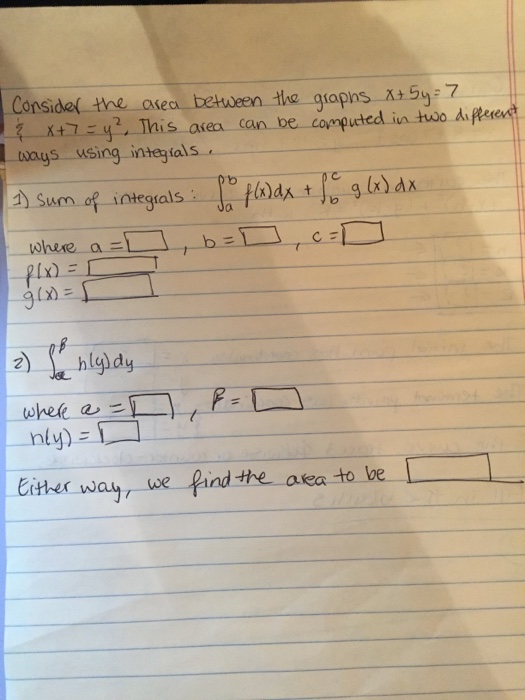 Consider the area between the graphs x+5y=7
& x+7=y². This area can be computed in two different
ways using integrals.
1) Sum of integrals: ∫ₐᵇ f(x)dx + ∫ᵇᶜ g(x)dx
where a = , b = , c =
f(x) =
g(x) =
2) ∫ₐᵝ h(y)dy
where a = , β =
h(y) =
Either way, we find the area to be